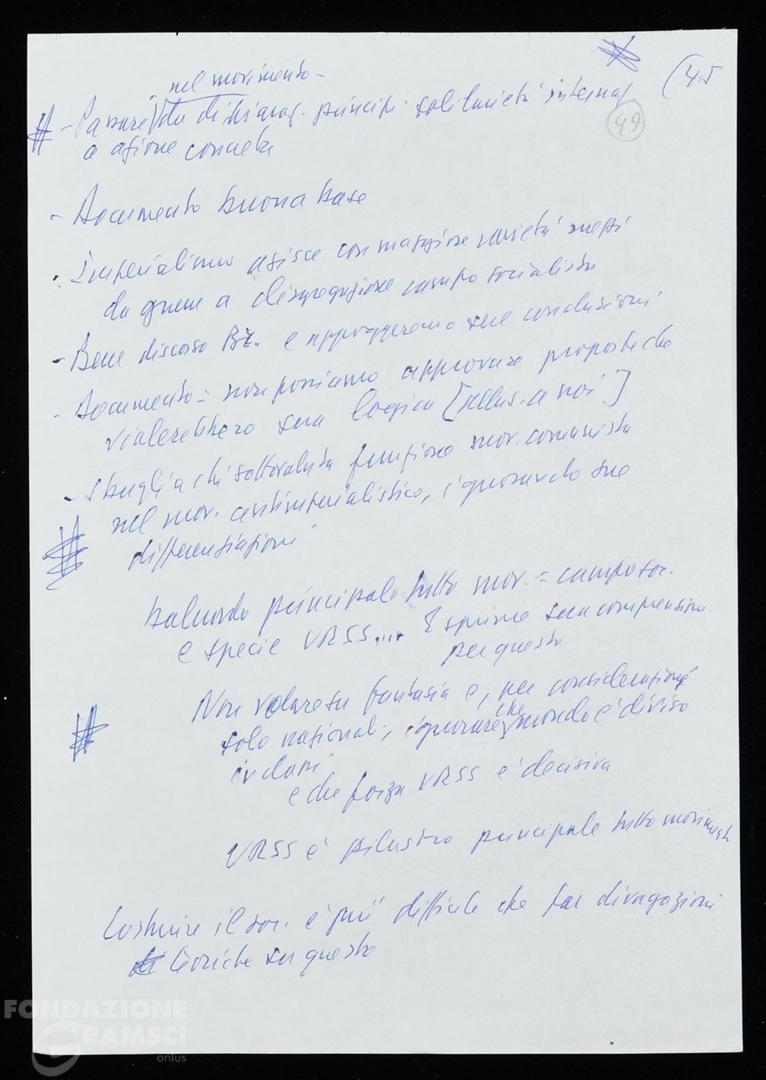 (45
49
nel movimento -
- Passare da dichiaraz. principi solidarietà internaz
a azione concreta
- Documento buona base
- Imperialismo agisce con maggiore varietà mezzi
da guerre a disgregazione campo socialista
- Bene discorso Bž. e appoggeremo sue conclusioni
- Documento = non possiamo approvare proposte che
violerebbero sua logica [allus. a noi]
- Sbaglia chi sottovaluta funzione mov. comunista
nel mov. antimperialistico, ignorando sue
differenziazioni
baluardo principale tutto mov. = campo soc.
e specie URSS... Esprime sua comprensione
per questo
Non volare su fantasia e, per considerazioni
solo nazionali, ignorare che mondo è diviso
in classi
e che forza URSS è decisiva
URSS è pilastro principale tutto movimento
Costruire il soc. è più difficile che far divagazioni
teoriche su questo
FONDAZIONE
GRAMSCI
onlus